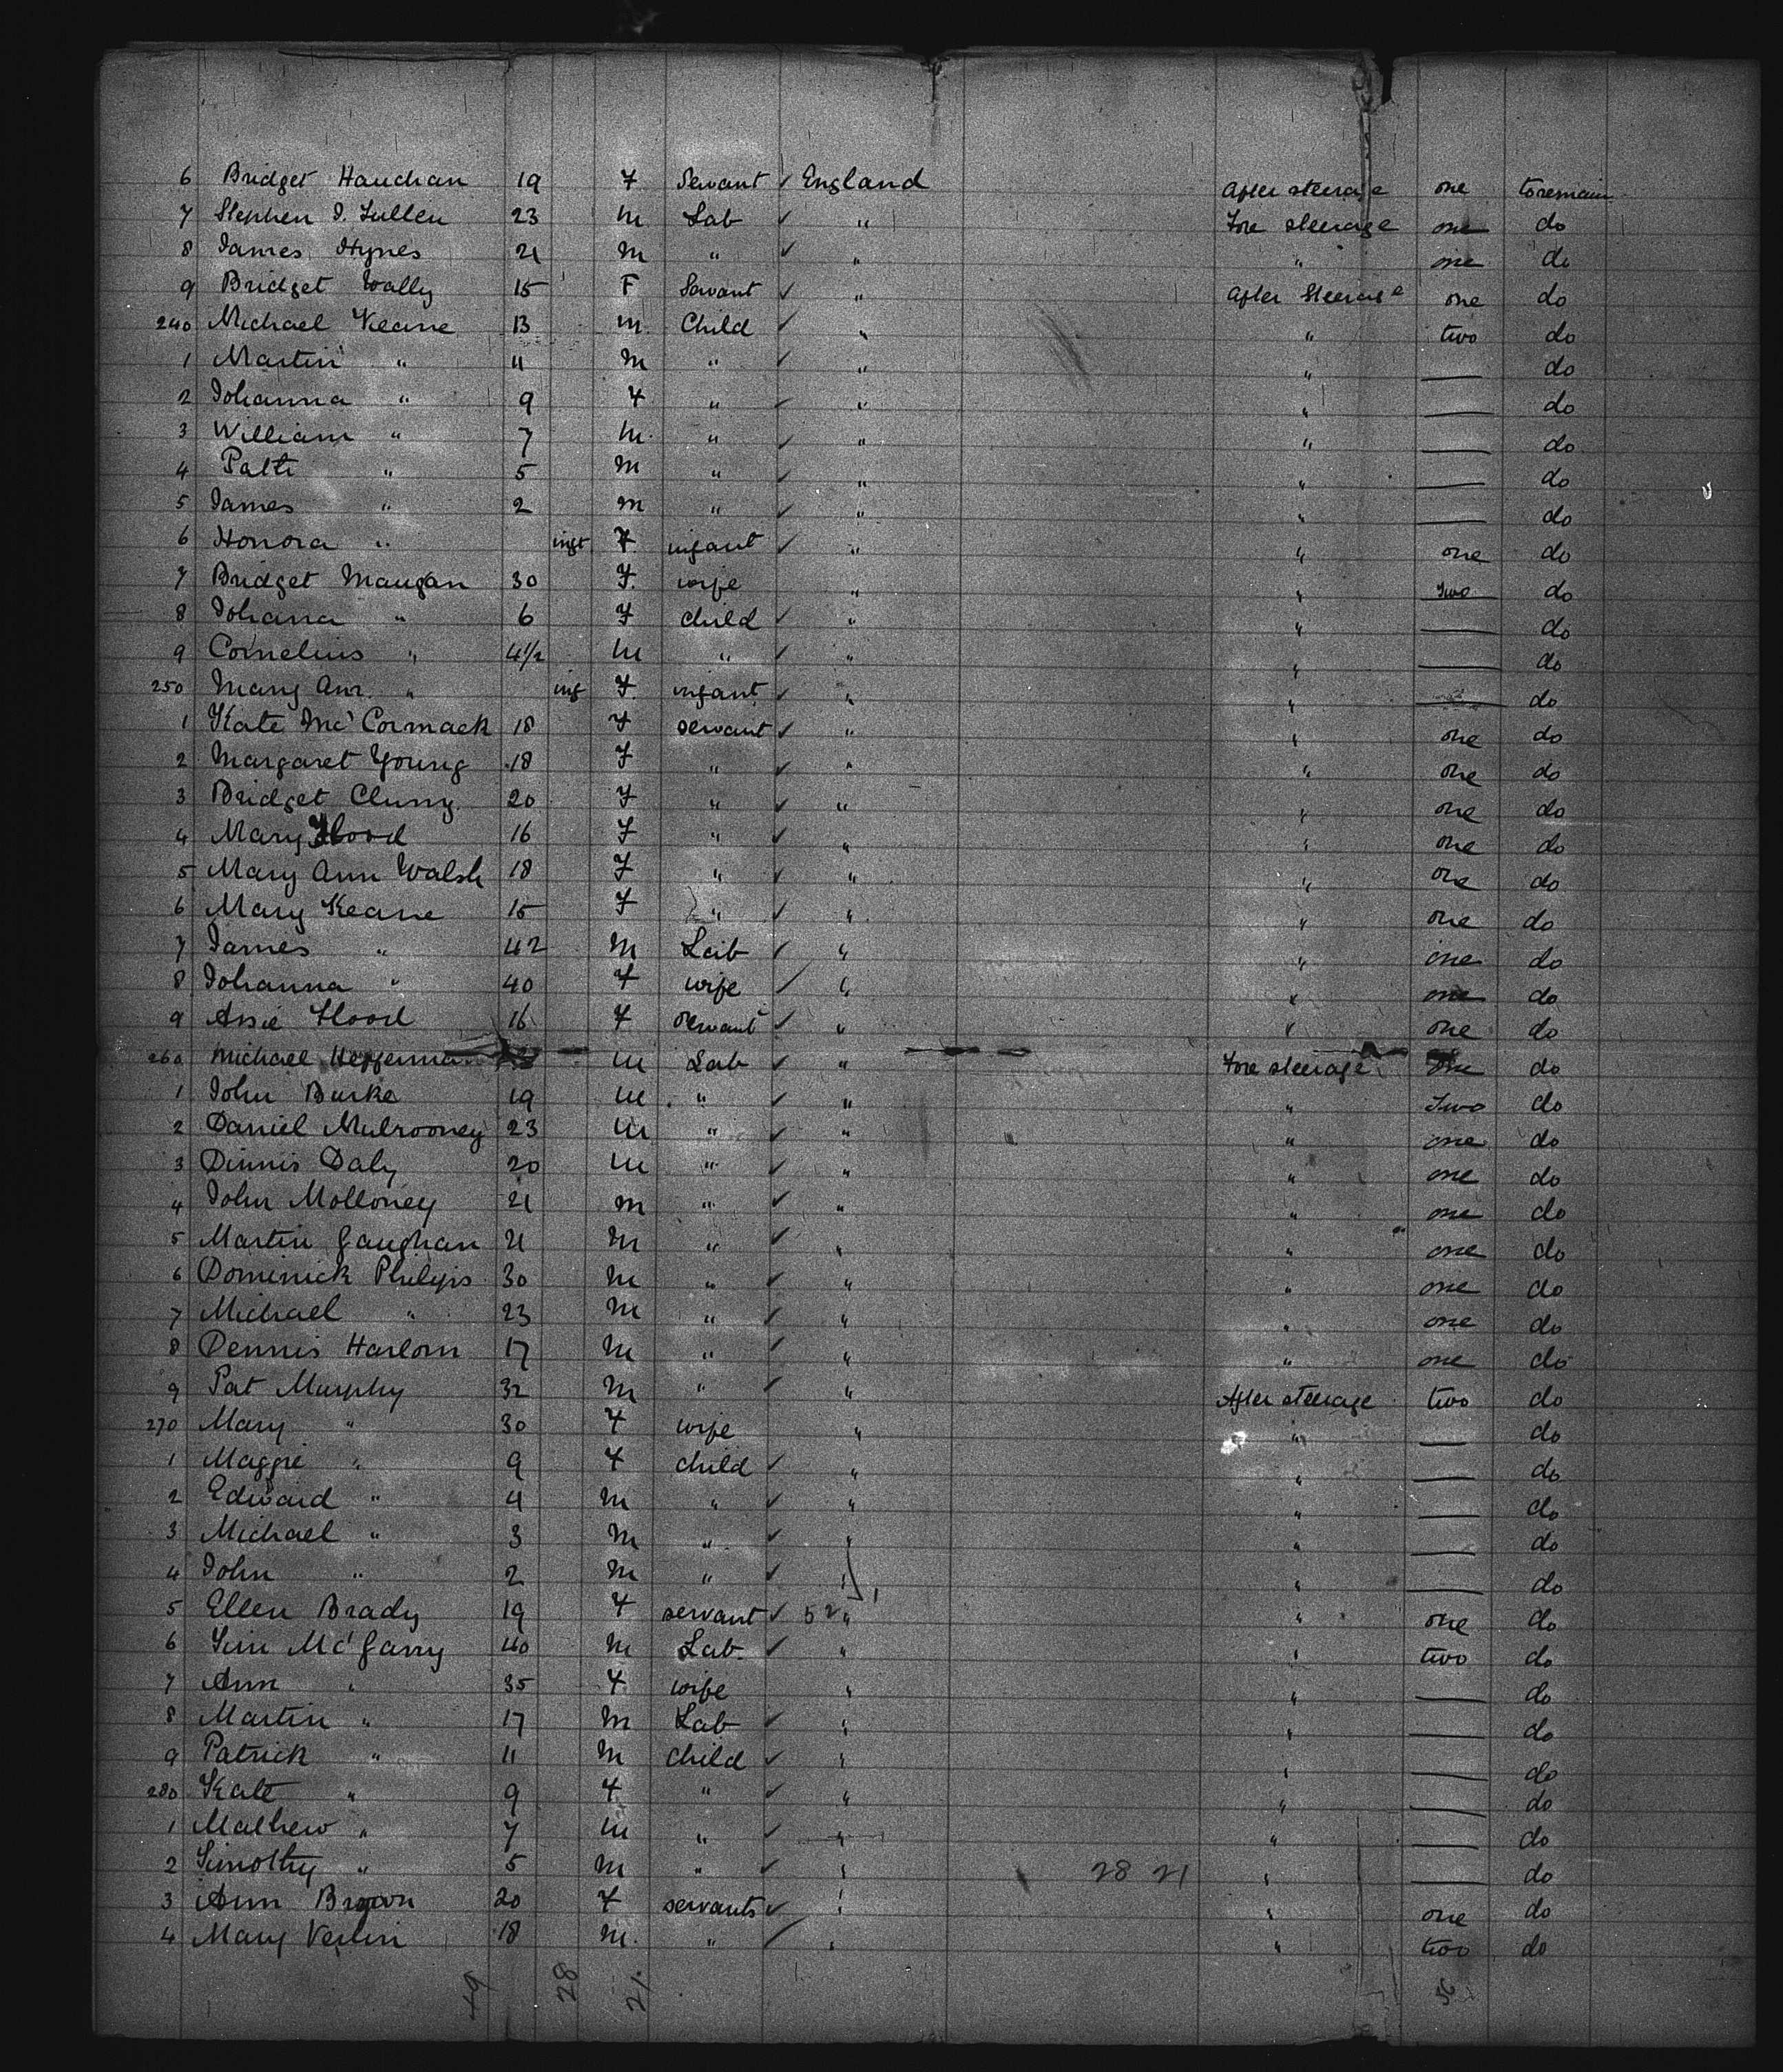 6 Bridget Hauchan 19 F Servant ✓ England After steerage one to remain
7 Stephen J. Fullen 23 M Lab ✓ " Fore steerage one do
8 James Hynes 21 M " ✓ " " one do
9 Bridget Wally 15 F Servant ✓ " After Steerage one do
240 Michael Keane 13 M. Child ✓ " " two do
1 Martin " 11 M " ✓ " " — do
2 Johanna " 9 F " ✓ " " — do
3 William " 7 M. " ✓ " " — do
4 Patk " 5 M " ✓ " " — do
5 James " 2 M " ✓ " " — do
6 Honora " inft F infant ✓ " " one do
7 Bridget Maugan 30 F. wife " " Two do
8 Johana " 6 F child ✓ " " — do
9 Cornelius " 4½ M " ✓ " " — do
250 Mary Ann " inf F. infant ✓ " " — do
1 Kate Mc'Cormack 18 F servant ✓ " " one do
2 Margaret Young 18 F " ✓ " " one do
3 Bridget Cluny 20 F " ✓ " " one do
4 Mary Flood 16 F " ✓ " " one do
5 Mary Ann Walsh 18 F " ✓ " " one do
6 Mary Keane 15 F " ✓ " " one do
7 James " 42 M Lab ✓ " " one do
8 Johanna " 40 F wife ✓ " " one do
9 Assie Flood 16 F servant ✓ " " one do
260 Michael Hefferman M Lab ✓ " Fore steerage do
1 John Burke 19 M " ✓ " " Two do
2 Daniel Mulrooney 23 M " ✓ " " one do
3 Dinnis Daly 20 M " ✓ " " one do
4 John Molloney 21 M " ✓ " " one do
5 Martin Gaughan 21 M " ✓ " " one do
6 Dominick Philips 30 M " ✓ " " one do
7 Michael " 23 M " ✓ " " one do
8 Dennis Harlom 17 M " ✓ " " one do
9 Pat Murphy 32 M " ✓ " After steerage two do
270 Mary " 30 F wife " " — do
1 Maggie " 9 F child ✓ " " — do
2 Edward " 4 M " ✓ " " — do
3 Michael " 3 M " ✓ " " — do
4 John " 2 M " ✓ " " — do
5 Ellen Brady 19 F servant ✓ 52 " " one do
6 Tim Mc'Garry 40 M Lab. ✓ " " two do
7 Ann " 35 F wife " " — do
8 Martin " 17 M Lab ✓ " " — do
9 Patrick " 11 M child ✓ " " — do
280 Kate " 9 F " ✓ " " — do
1 Mathew " 7 M " ✓ " " — do
2 Timothy " 5 M " ✓ " 28 21 " — do
3 Ann Brown 20 F servants ✓ " " one do
4 Mary Verlin 18 M. " ✓ " " two do
49 28 21.